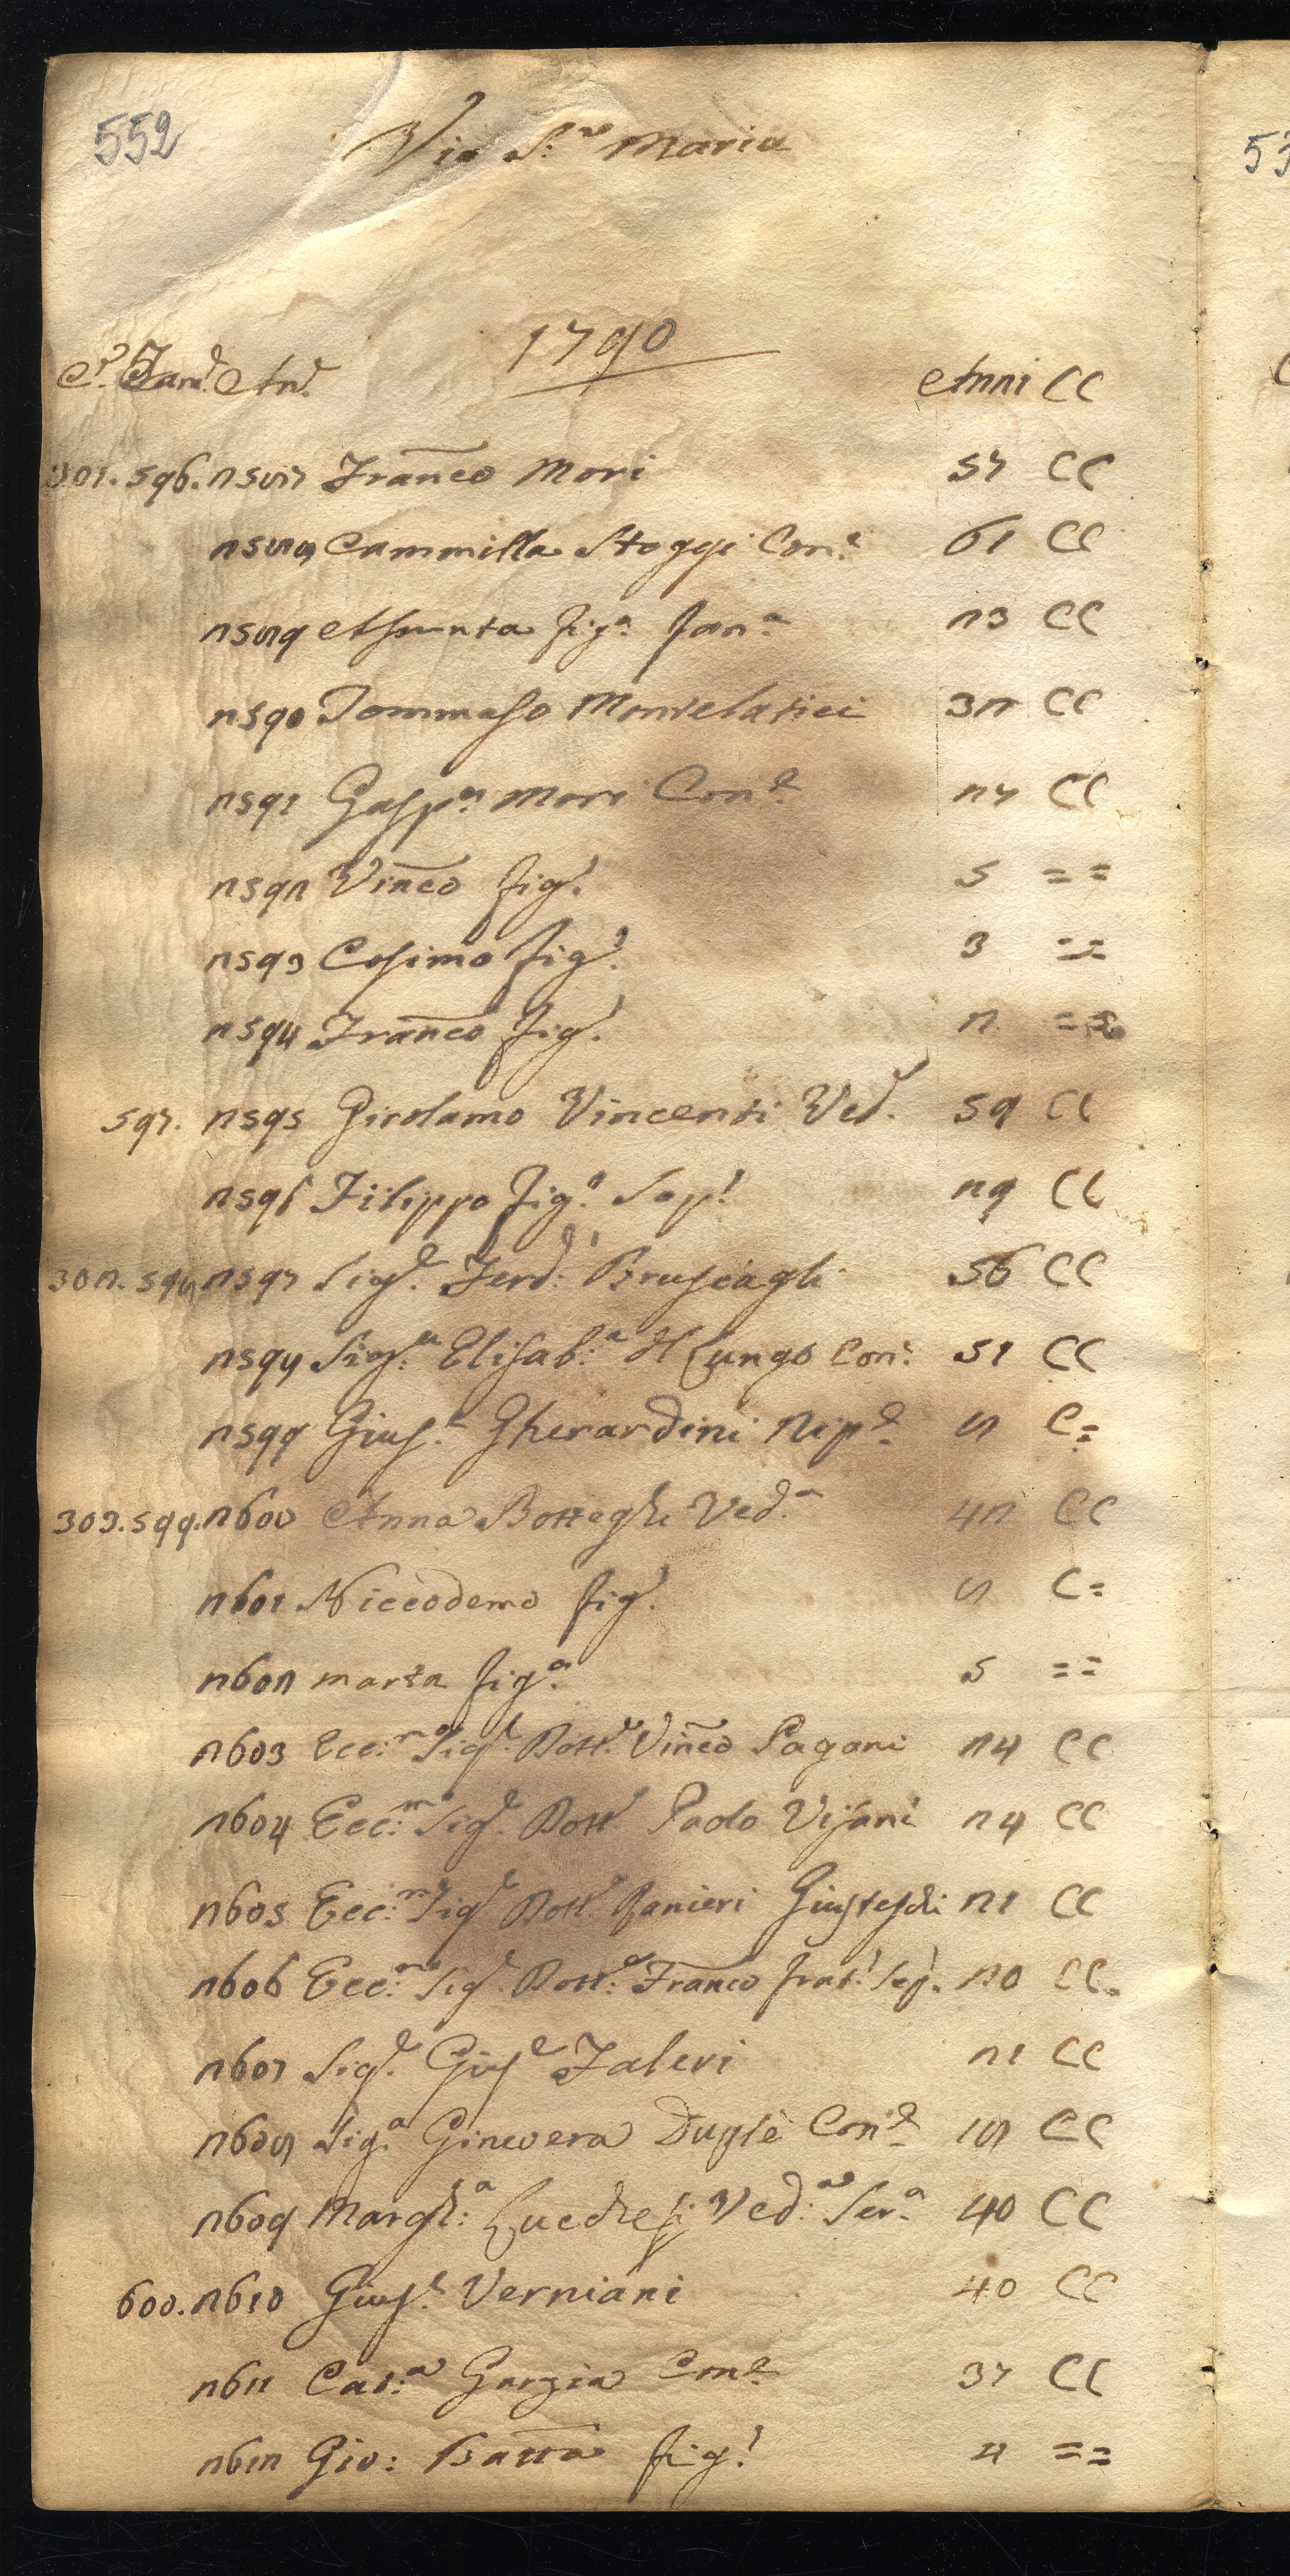 552
Via S:ª Maria
1790
C.ª Fam.ᵉ An.ᵉ Anni CC
301. 596. 2587 Franco Mori 57 CC
2588 Cammilla Stoggi Con.ᵉ 61 CC
2589 Assunta fig.ª fan.ª 23 CC
2590 Tommaso Montelatici 32 CC
2591 Gasp.ª Mori Con.ᵉ 27 CC
2592 Vinco fig.º 5 = =
2593 Cosimo fig.º 3 = =
2594 Franco fig.º 2 = =
597. 2595 Girolamo Vincenti Ved.º 59 CC
2596 Filippo fig.º Sop.º 29 CC
302. 598 2597 Sig.ᵉ Ferd:º Bruscagli 56 CC
2598 Sig:ª Elisab:ª Lungo Con: 51 CC
2599 Gius.ᵉ Gherardini Nip.ᵉ 8 C=
303. 599. 2600 Anna Botteghi Ved.ª 42 CC
2601 Niccodemo fig.º 8 C=
2602 Marta fig.ª 5 = =
2603 Ecc:ᵐº Sig.ᵉ Dott.ᵉ Vinco Pagani 24 CC
2604 Ecc:ᵐº Sig.ᵉ Dott.ᵉ Paolo Visani 24 CC
2605 Ecc:ᵐº Sig.ᵉ Dott.ᵉ Ranieri 21 CC
2606 Ecc:ᵐº Sig.ᵉ Dott:ᵉ Franco frat:º Sop.º 20 CC.
2607 Sig.ᵉ Gius.ᵉ Faleri 21 CC
2608 Sig.ª Ginevera Duglè Con.ᵉ 18 CC
2609 Margh:ª Lucchesi Ved:ª Ser.ª 40 CC
600. 2610 Gius.ᵉ Verniani 40 CC
2611 Cat:ª Garzia Con.ᵉ 37 CC
2612 Gio: Batta fig.º 4 = =